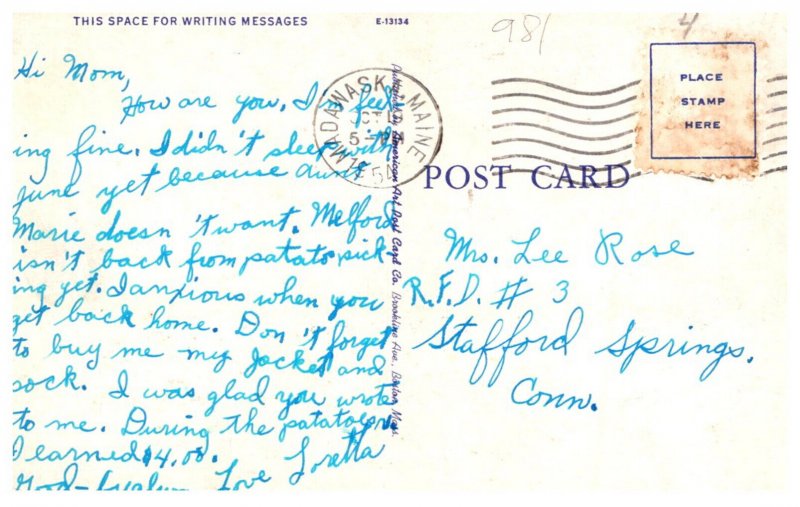 THIS SPACE FOR WRITING MESSAGES
E-13134
981
4
Hi Mom,
How are you. I'm feel-
ing fine. I didn't sleep with
June yet because aunt
Marie doesn't want. Melford
isn't back from patato pick-
ing yet. I anxious when you
get back home. Don't forget
to buy me my jacket and
sock. I was glad you wrote
to me. During the patatoes
I earned $4.00.
Good-by Love Loretta
Published by American Art Post Card Co. Brookline Ave., Boston, Mass.
MADAWASKA MAINE
OCT
5-PM
1954
PLACE
STAMP
HERE
POST CARD
Mrs. Lee Rose
R.F.D. # 3
Stafford Springs,
Conn.